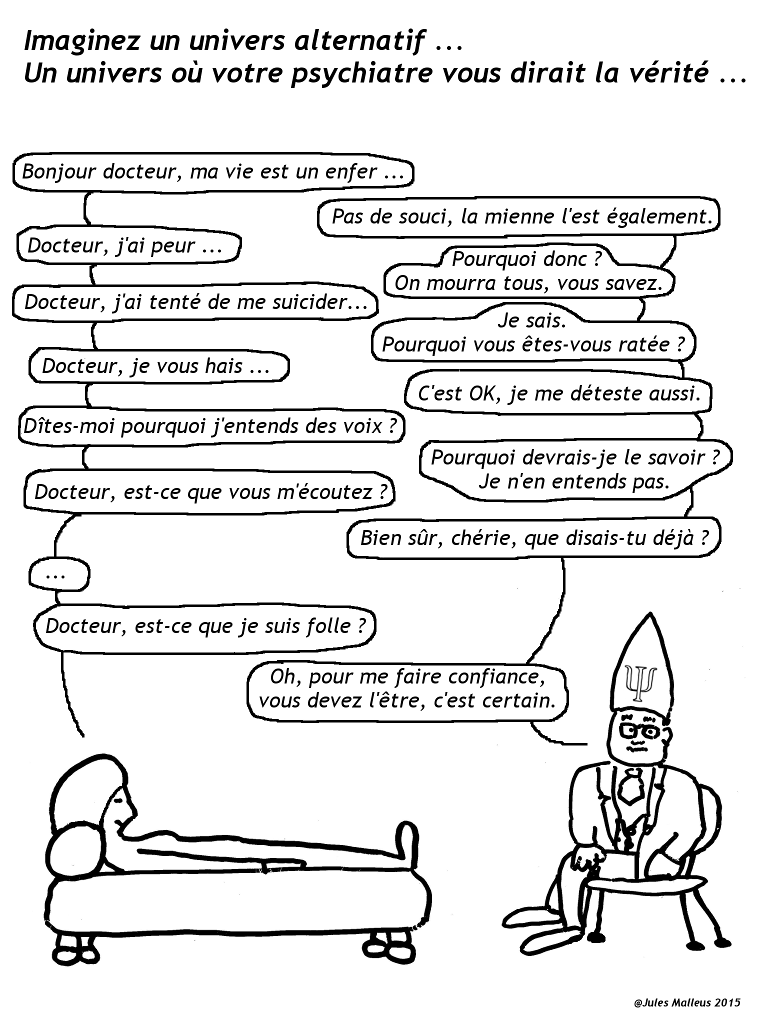 Imaginez un univers alternatif ...
Un univers où votre psychiatre vous dirait la vérité ...
Bonjour docteur, ma vie est un enfer ...
Pas de souci, la mienne l'est également.
Docteur, j'ai peur ...
Pourquoi donc ?
On mourra tous, vous savez.
Docteur, j'ai tenté de me suicider...
Je sais.
Pourquoi vous êtes-vous ratée ?
Docteur, je vous hais ...
C'est OK, je me déteste aussi.
Dîtes-moi pourquoi j'entends des voix ?
Pourquoi devrais-je le savoir ?
Je n'en entends pas.
Docteur, est-ce que vous m'écoutez ?
Bien sûr, chérie, que disais-tu déjà ?
...
Docteur, est-ce que je suis folle ?
Oh, pour me faire confiance,
vous devez l'être, c'est certain.
Ψ
@Jules Malleus 2015